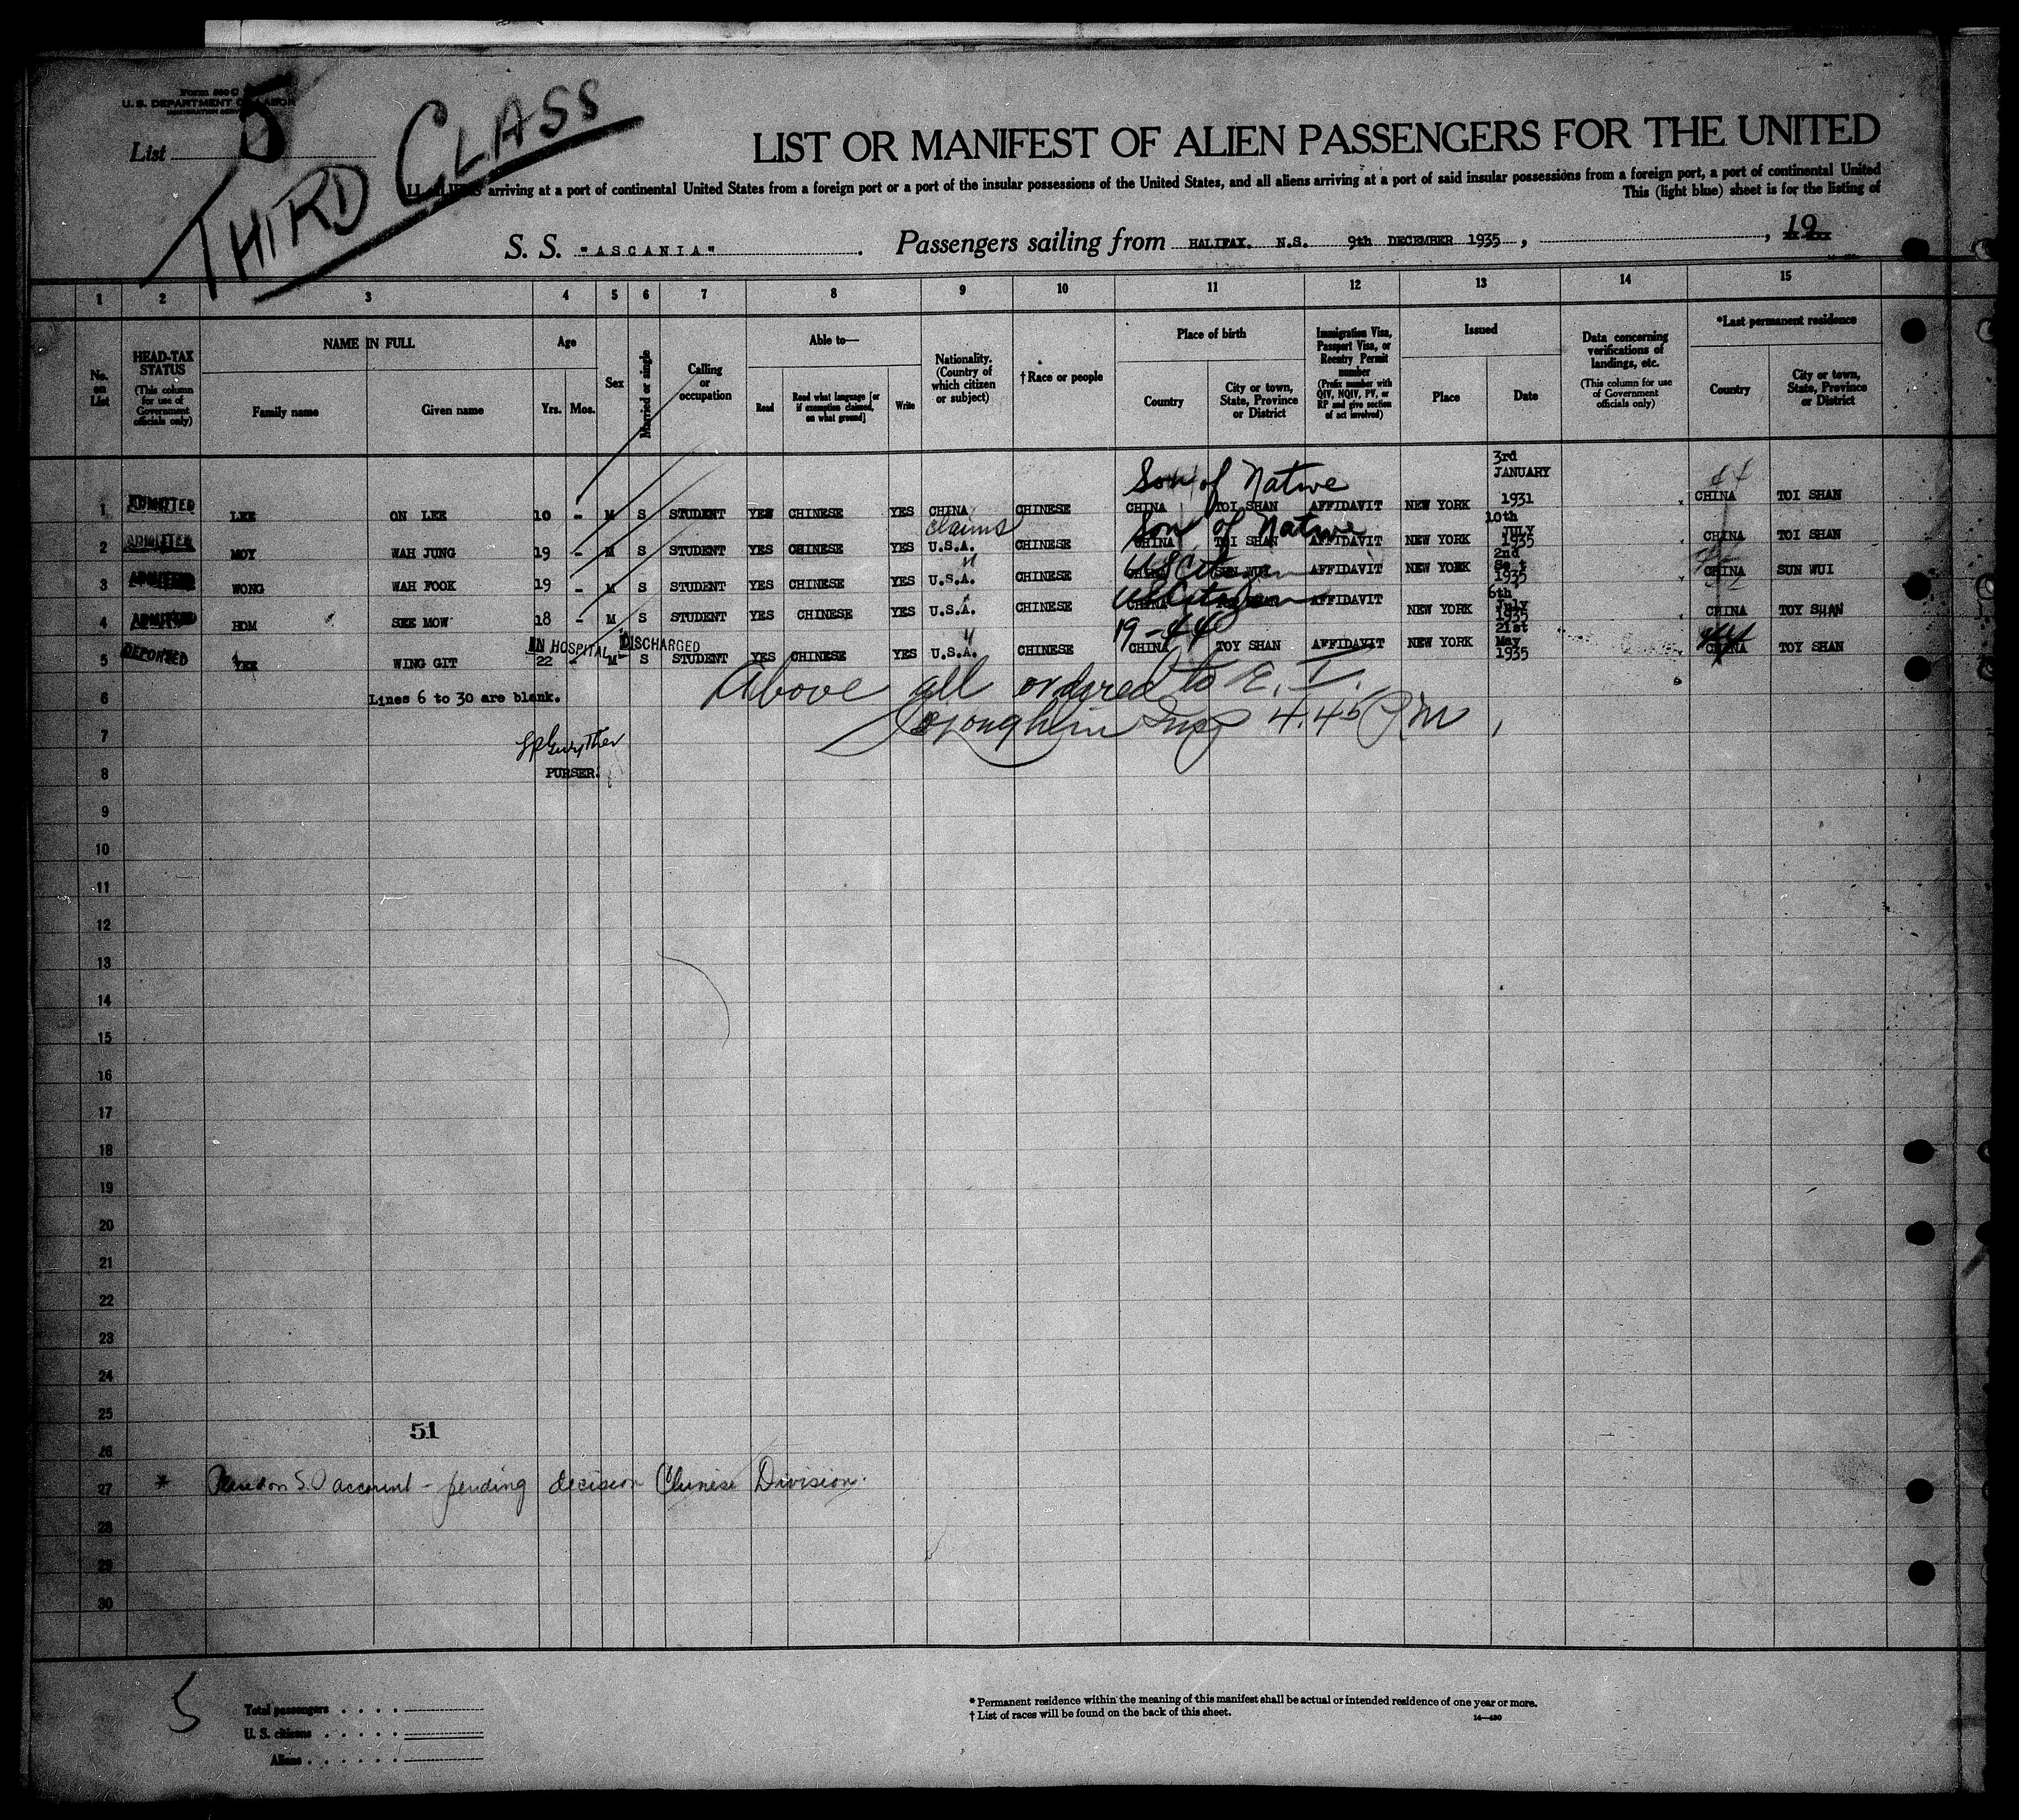 Form 500 C
U. S. DEPARTMENT OF LABOR
List 5
THIRD CLASS
LIST OR MANIFEST OF ALIEN PASSENGERS FOR THE UNITED
arriving at a port of continental United States from a foreign port or a port of the insular possessions of the United States, and all aliens arriving at a port of said insular possessions from a foreign port, a port of continental United
This (light blue) sheet is for the listing of
S. S. "ASCANIA". Passengers sailing from HALIFAX. N.S. 9th DECEMBER 1935, , 19
1 2 3 4 5 6 7 8 9 10 11 12 13 14 15
No. on List
HEAD-TAX STATUS (This column for use of Government officials only)
NAME IN FULL
Family name
Given name
Age
Yrs.
Mos.
Sex
Married or single
Calling or occupation
Able to—
Read
Read what language [or if exemption claimed, on what ground]
Write
Nationality. (Country of which citizen or subject)
† Race or people
Place of birth
Country
City or town, State, Province or District
Immigration Visa, Passport Visa, or Reentry Permit number (Prefix number with QIV, NQIV, PV, or RP and give section of act involved)
Issued
Place
Date
Data concerning verifications of landings, etc. (This column for use of Government officials only)
*Last permanent residence
Country
City or town, State, Province or District
Son of Native
1 ADMITTED LEE ON LEE 10 - M S STUDENT YES CHINESE YES CHINA CHINESE CHINA TOI SHAN AFFIDAVIT NEW YORK 3rd JANUARY 1931 CHINA TOI SHAN
claims Son of Native
2 ADMITTED MOY WAH JUNG 19 - M S STUDENT YES CHINESE YES U.S.A. CHINESE CHINA TOI SHAN AFFIDAVIT NEW YORK 10th JULY 1935 CHINA TOI SHAN
US Citizen
3 ADMITTED WONG WAH FOOK 19 - M S STUDENT YES CHINESE YES U.S.A. CHINESE CHINA SUN WUI AFFIDAVIT NEW YORK 2nd 1935 CHINA SUN WUI
US Citizen
4 ADMITTED HOM SEE MOW 18 - M S STUDENT YES CHINESE YES U.S.A. CHINESE CHINA AFFIDAVIT NEW YORK 6th July 1935 CHINA TOY SHAN
IN HOSPITAL DISCHARGED 19-44
5 DEPORTED YEE WING GIT 22 - M S STUDENT YES CHINESE YES U.S.A. CHINESE CHINA TOY SHAN AFFIDAVIT NEW YORK 21st May 1935 CHINA TOY SHAN
Above all ordered to E. I.
6 Lines 6 to 30 are blank.
Insp 4.45 PM
7
8 PURSER.
9
10
11
12
13
14
15
16
17
18
19
20
21
22
23
24
25
51
26
27 * account - pending decision Chinese Division.
28
29
30
5
Total passengers
U. S. citizens
Aliens
* Permanent residence within the meaning of this manifest shall be actual or intended residence of one year or more.
† List of races will be found on the back of this sheet.
14—430